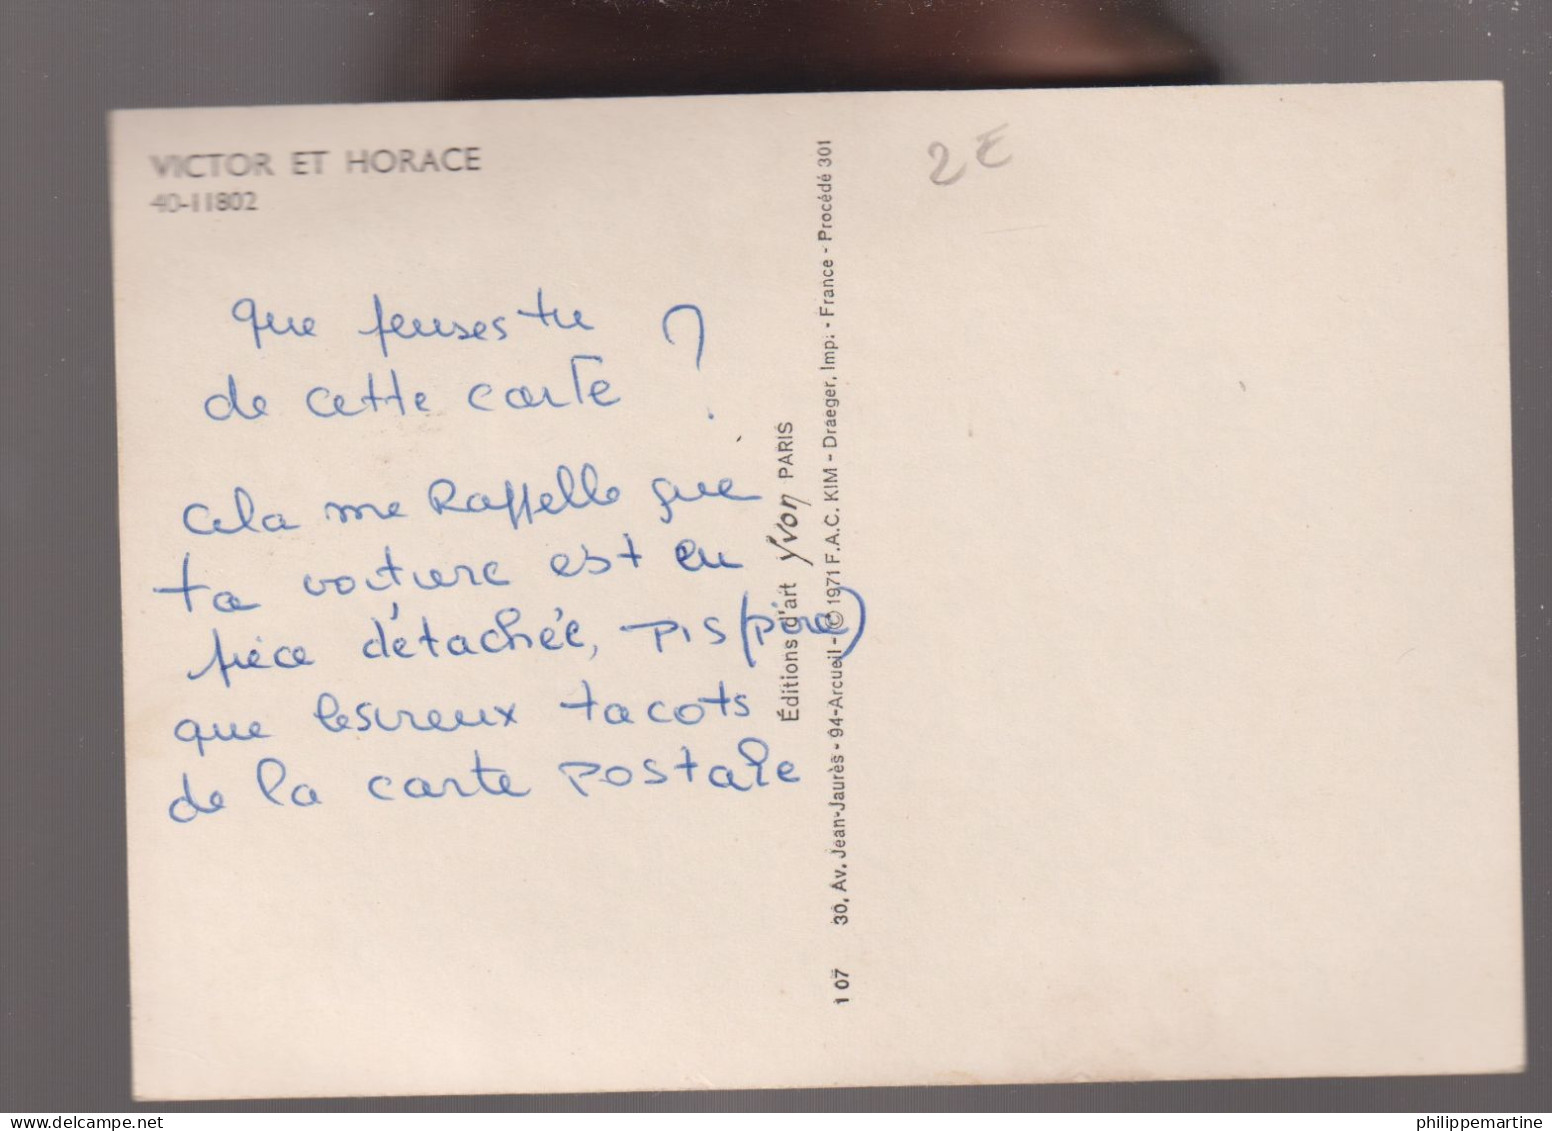 VICTOR ET HORACE
40-11802
que penses tu
de cette carte ?
cela me Rappelle que
ta voiture est en
pièce détachée, pis (pire)
que les vieux tacots
de la carte postale
Éditions d'art Yvon PARIS
1 07 30, Av. Jean-Jaurès - 94-Arcueil - © 1971 F.A.C. KIM - Draeger, Imp. - France - Procédé 301
2 E
delcampe.net
philippemartine